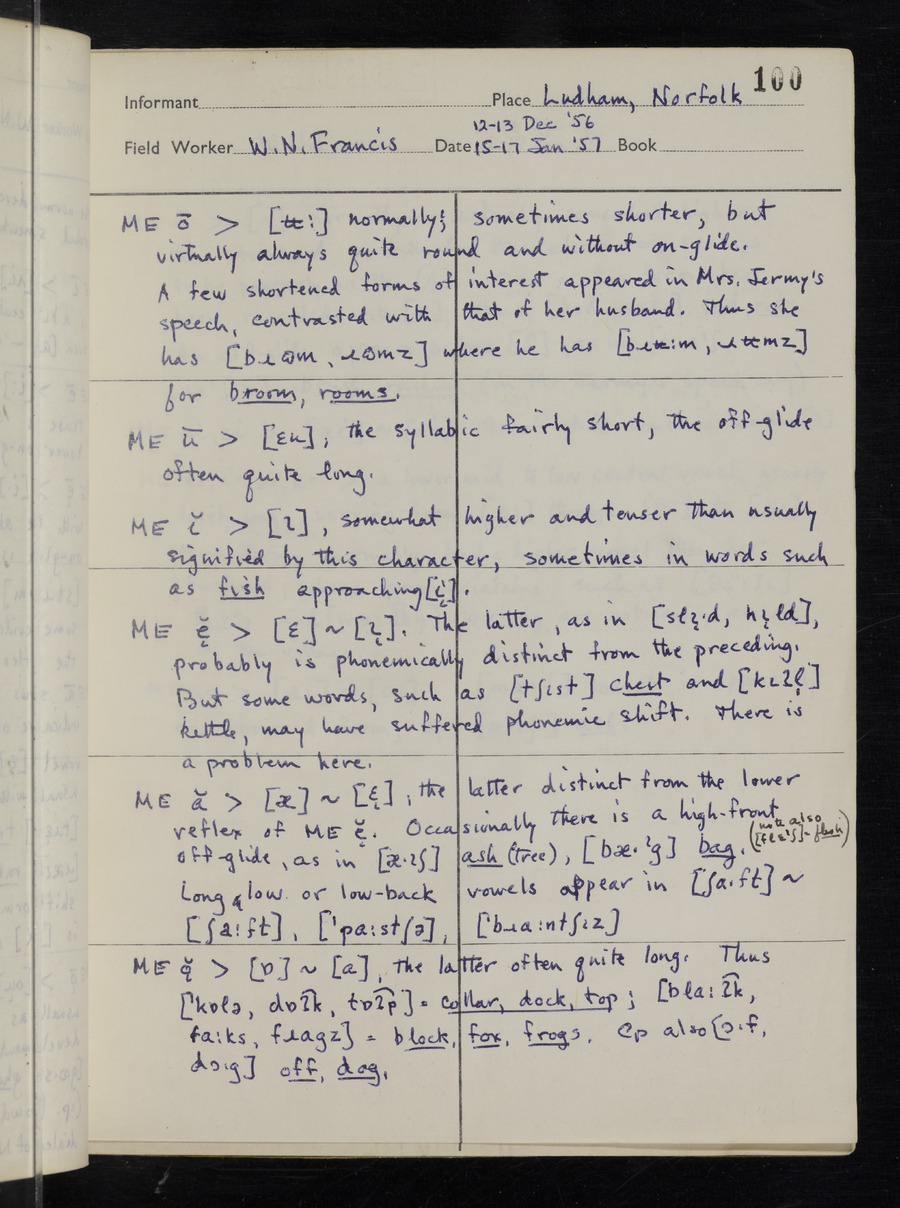 100
Informant Place Ludham, Norfolk
12-13 Dec '56
Field Worker W.N. Francis Date 15-17 Jan '57 Book
ME ō > [ʉ:] normally; sometimes shorter, but
virtually always quite round and without on-glide.
A few shortened forms of interest appeared in Mrs. Jermy's
speech, contrasted with that of her husband. Thus she
has [bɹɷm, ɹɷmz] where he has [bɹʉ:m, ɹʉmz]
for broom, rooms.
ME ū > [ɛu]; the syllabic fairly short, the off-glide
often quite long.
ME ĭ > [ɩ], somewhat higher and tenser than usually
signified by this character, sometimes in words such
as fish approaching [i̞].
ME ĕ̜ > [ɛ] ~ [ɩ̞]. The latter, as in [sɫɩ̞·d, hɩ̞ɫd],
probably is phonemically distinct from the preceding.
But some words, such as [tʃɩst] chest and [kɩʔl̩]
kettle, may have suffered phonemic shift. There is
a problem here.
ME ă > [æ] ~ [ɛ̞]; the latter distinct from the lower
reflex of ME ĕ̜. Occasionally there is a high-front
(note also
off-glide, as in [æ·ɩʃ] ash (tree), [bæ·ᶦg] bag. [flɛᶦʃ] = flash)
Long low or low-back vowels appear in [ʃa·ft] ~
[ʃa:ft], ['pa:stʃə], ['bɹa:ntʃɩz]
ME ǫ̆ > [ɒ] ~ [ɑ], the latter often quite long. Thus
[kɒlə, dɒʔ͡k, tɒʔ͡p] = collar, dock, top; [blɑ:ʔ͡k,
fɑ:ks, fɹɑgz] = block, fox, frogs. Cp also [ɔ·f,
dɔ:g] off, dog.